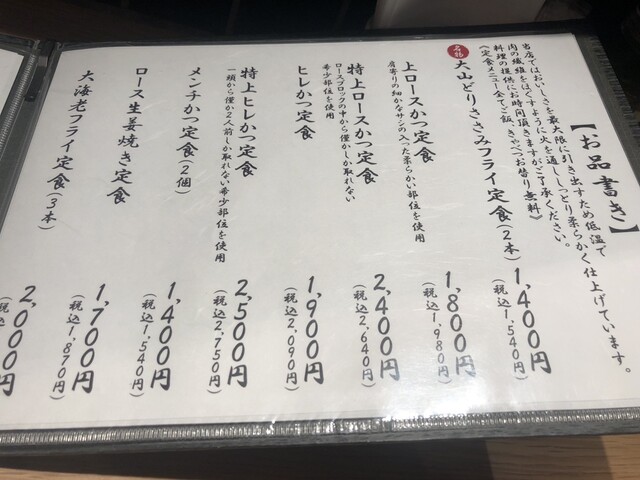 【お品書き】
当店ではおいしさを最大限に引き出すため低温で
肉の繊維をほぐすように火を通ししっとり柔らかく仕上げています。
料理の提供にお時間頂きますがご了承ください。
《定食メニュー全てご飯、きゃべつお替り無料》
名物
大山どりささみフライ定食(2本)
1,400円
(税込1,540円)
上ロースかつ定食
肩寄りの細かなサシの入った柔らかい部位を使用
1,800円
(税込1,980円)
特上ロースかつ定食
ロースブロックの中から僅かしか取れない
希少部位を使用
2,400円
(税込2,640円)
ヒレかつ定食
1,900円
(税込2,090円)
特上ヒレかつ定食
一頭から僅か2人前しか取れない希少部位を使用
2,500円
(税込2,750円)
メンチかつ定食(2個)
1,400円
(税込1,540円)
ロース生姜焼き定食
1,700円
(税込1,870円)
大海老フライ定食(3本)
2,000円